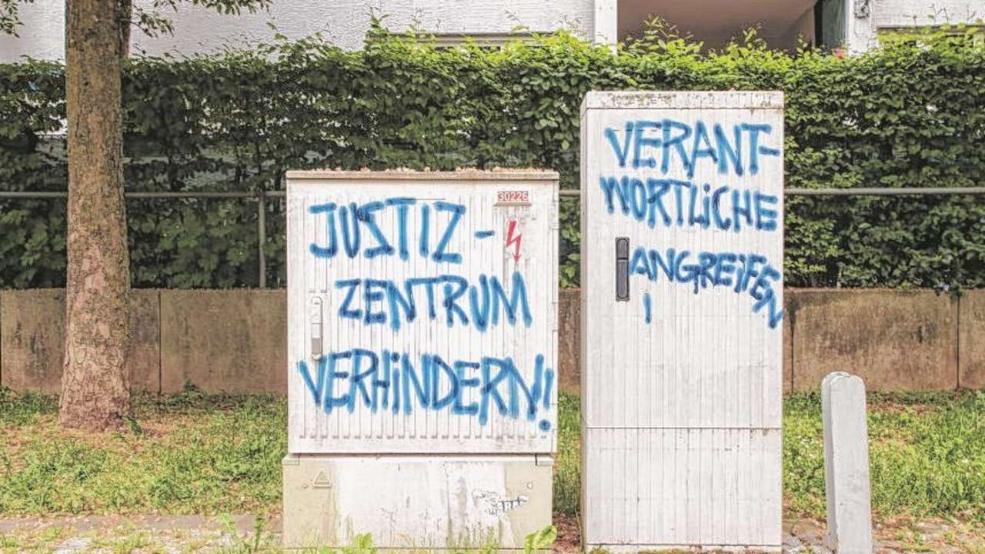 30226
JUSTIZ-
ZENTRUM
VERHINDERN!
VERANT-
WORTLiCHE
ANGREiFEN
!